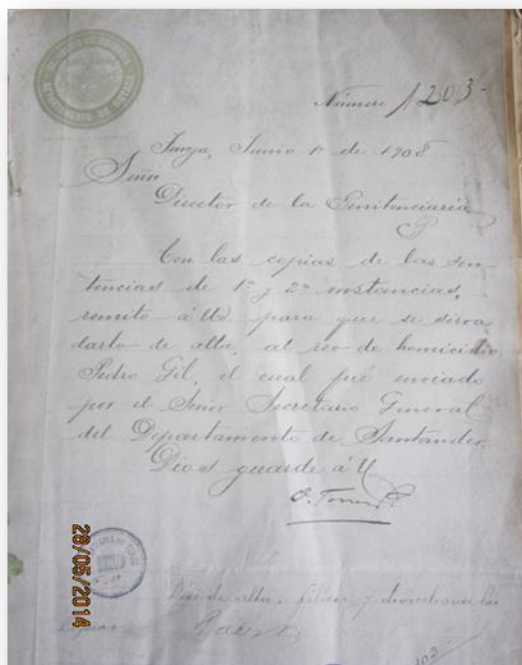 Número 1203-
Tunja, Junio 1º de 1908
Señor
Director de la Penitenciaria
P
Con las copias de las sen-
tencias de 1ª y 2ª instancias,
remito á Ud. para que se sirva
darlo de alta, al reo de homicidio
Pedro Gil, el cual fué enviado
por el Señor Secretario General
del Departamento de Santander.
Dios guarde á U
28/05/2014
de alta, y